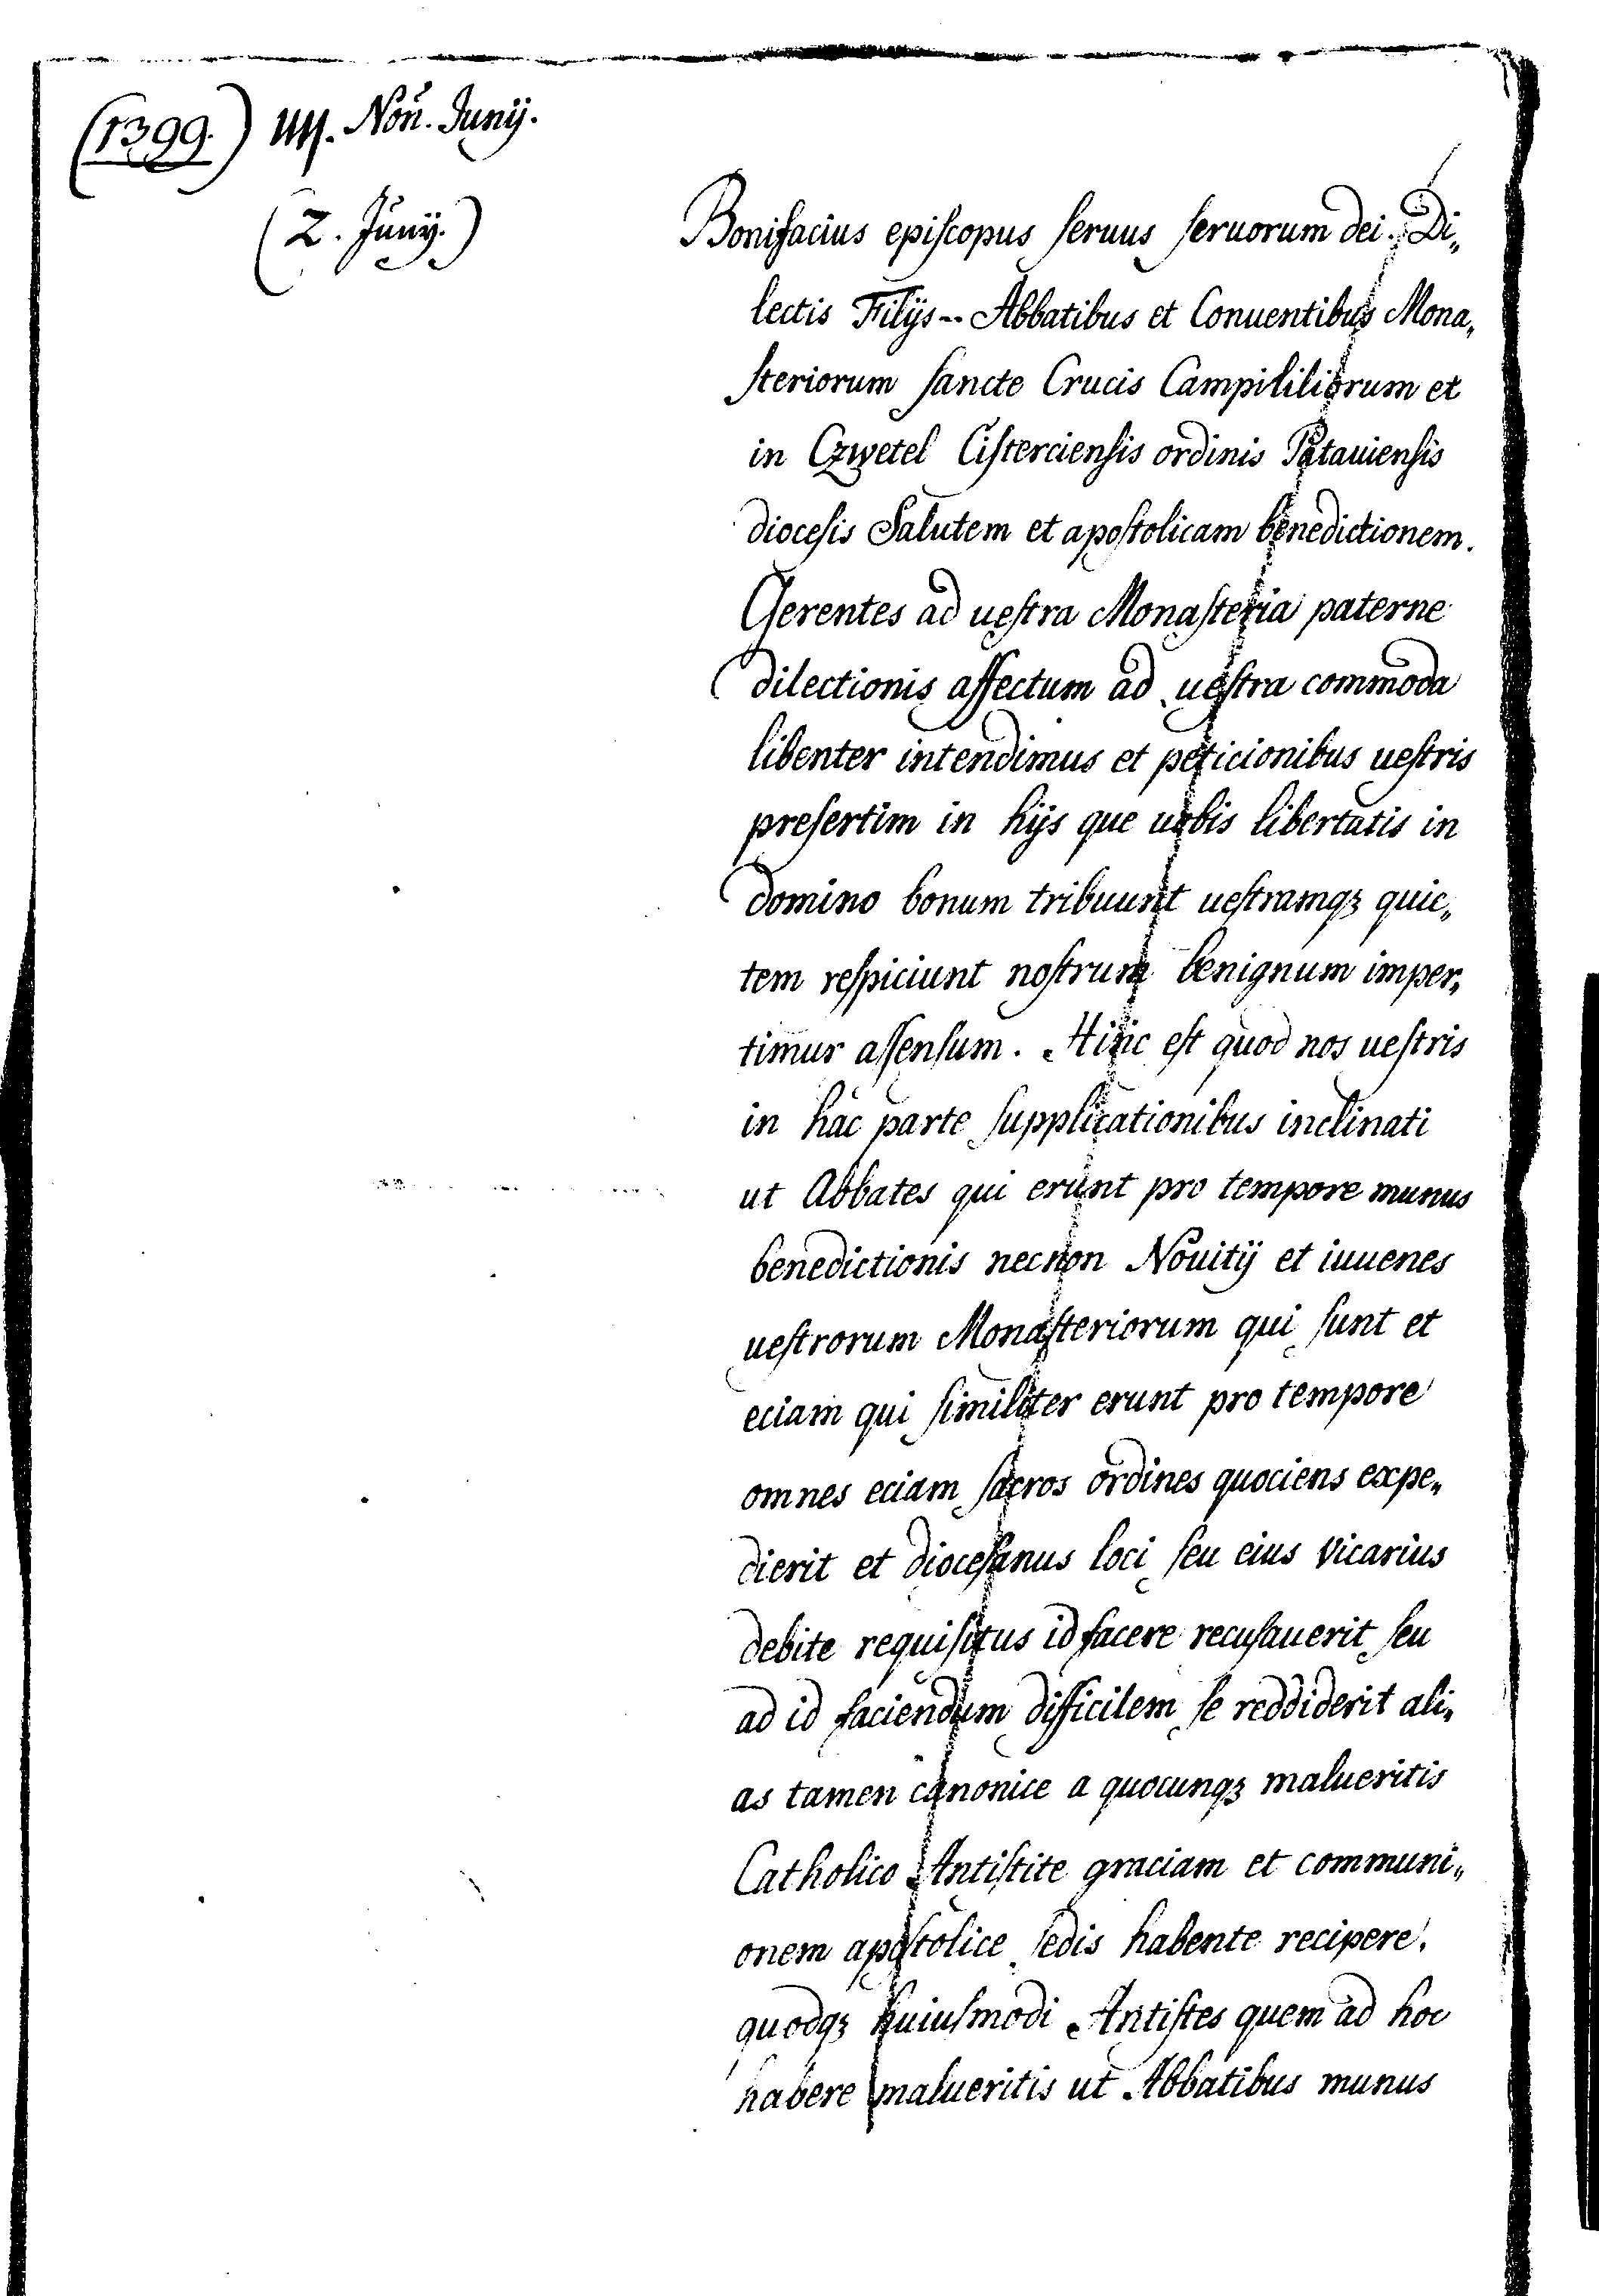 (1399.) IIII. Noñ. Junij.
(2. Junij.)
Bonifacius epiſcopus ſeruus ſeruorum dei. Di„
lectis Filijs -- Abbatibus et Conuentibus Mona„
ſteriorum ſancte Crucis Campililiorum et
in Czwetel Ciſtercienſis ordinis Patauienſis
dioceſis Salutem et apoſtolicam benedictionem.
Gerentes ad ueſtra Monaſteria paterne
dilectionis affectum ad ueſtra commoda
libenter intendimus et peticionibus ueſtris
preſertim in hijs que uobis libertatis in
domino bonum tribuunt ueſtramqꝫ quie„
tem reſpiciunt noſtrum benignum imper„
timur aſſenſum. Hinc eſt quod nos ueſtris
in hac parte ſupplicationibus inclinati
ut Abbates qui erunt pro tempore munus
benedictionis necnon Nouitij et iuuenes
ueſtrorum Monaſteriorum qui ſunt et
eciam qui ſimiliter erunt pro tempore
omnes eciam ſacros ordines quociens expe„
dierit et dioceſanus loci ſeu eius Vicarius
debite requiſitus id facere recuſauerit ſeu
ad id faciendum difficilem ſe reddiderit ali„
as tamen canonice a quocunqꝫ malueritis
Catholico Antiſtite graciam et communi„
onem apoſtolice ſedis habente recipere.
quodqꝫ huiuſmodi Antiſtes quem ad hoc
habere malueritis ut Abbatibus munus